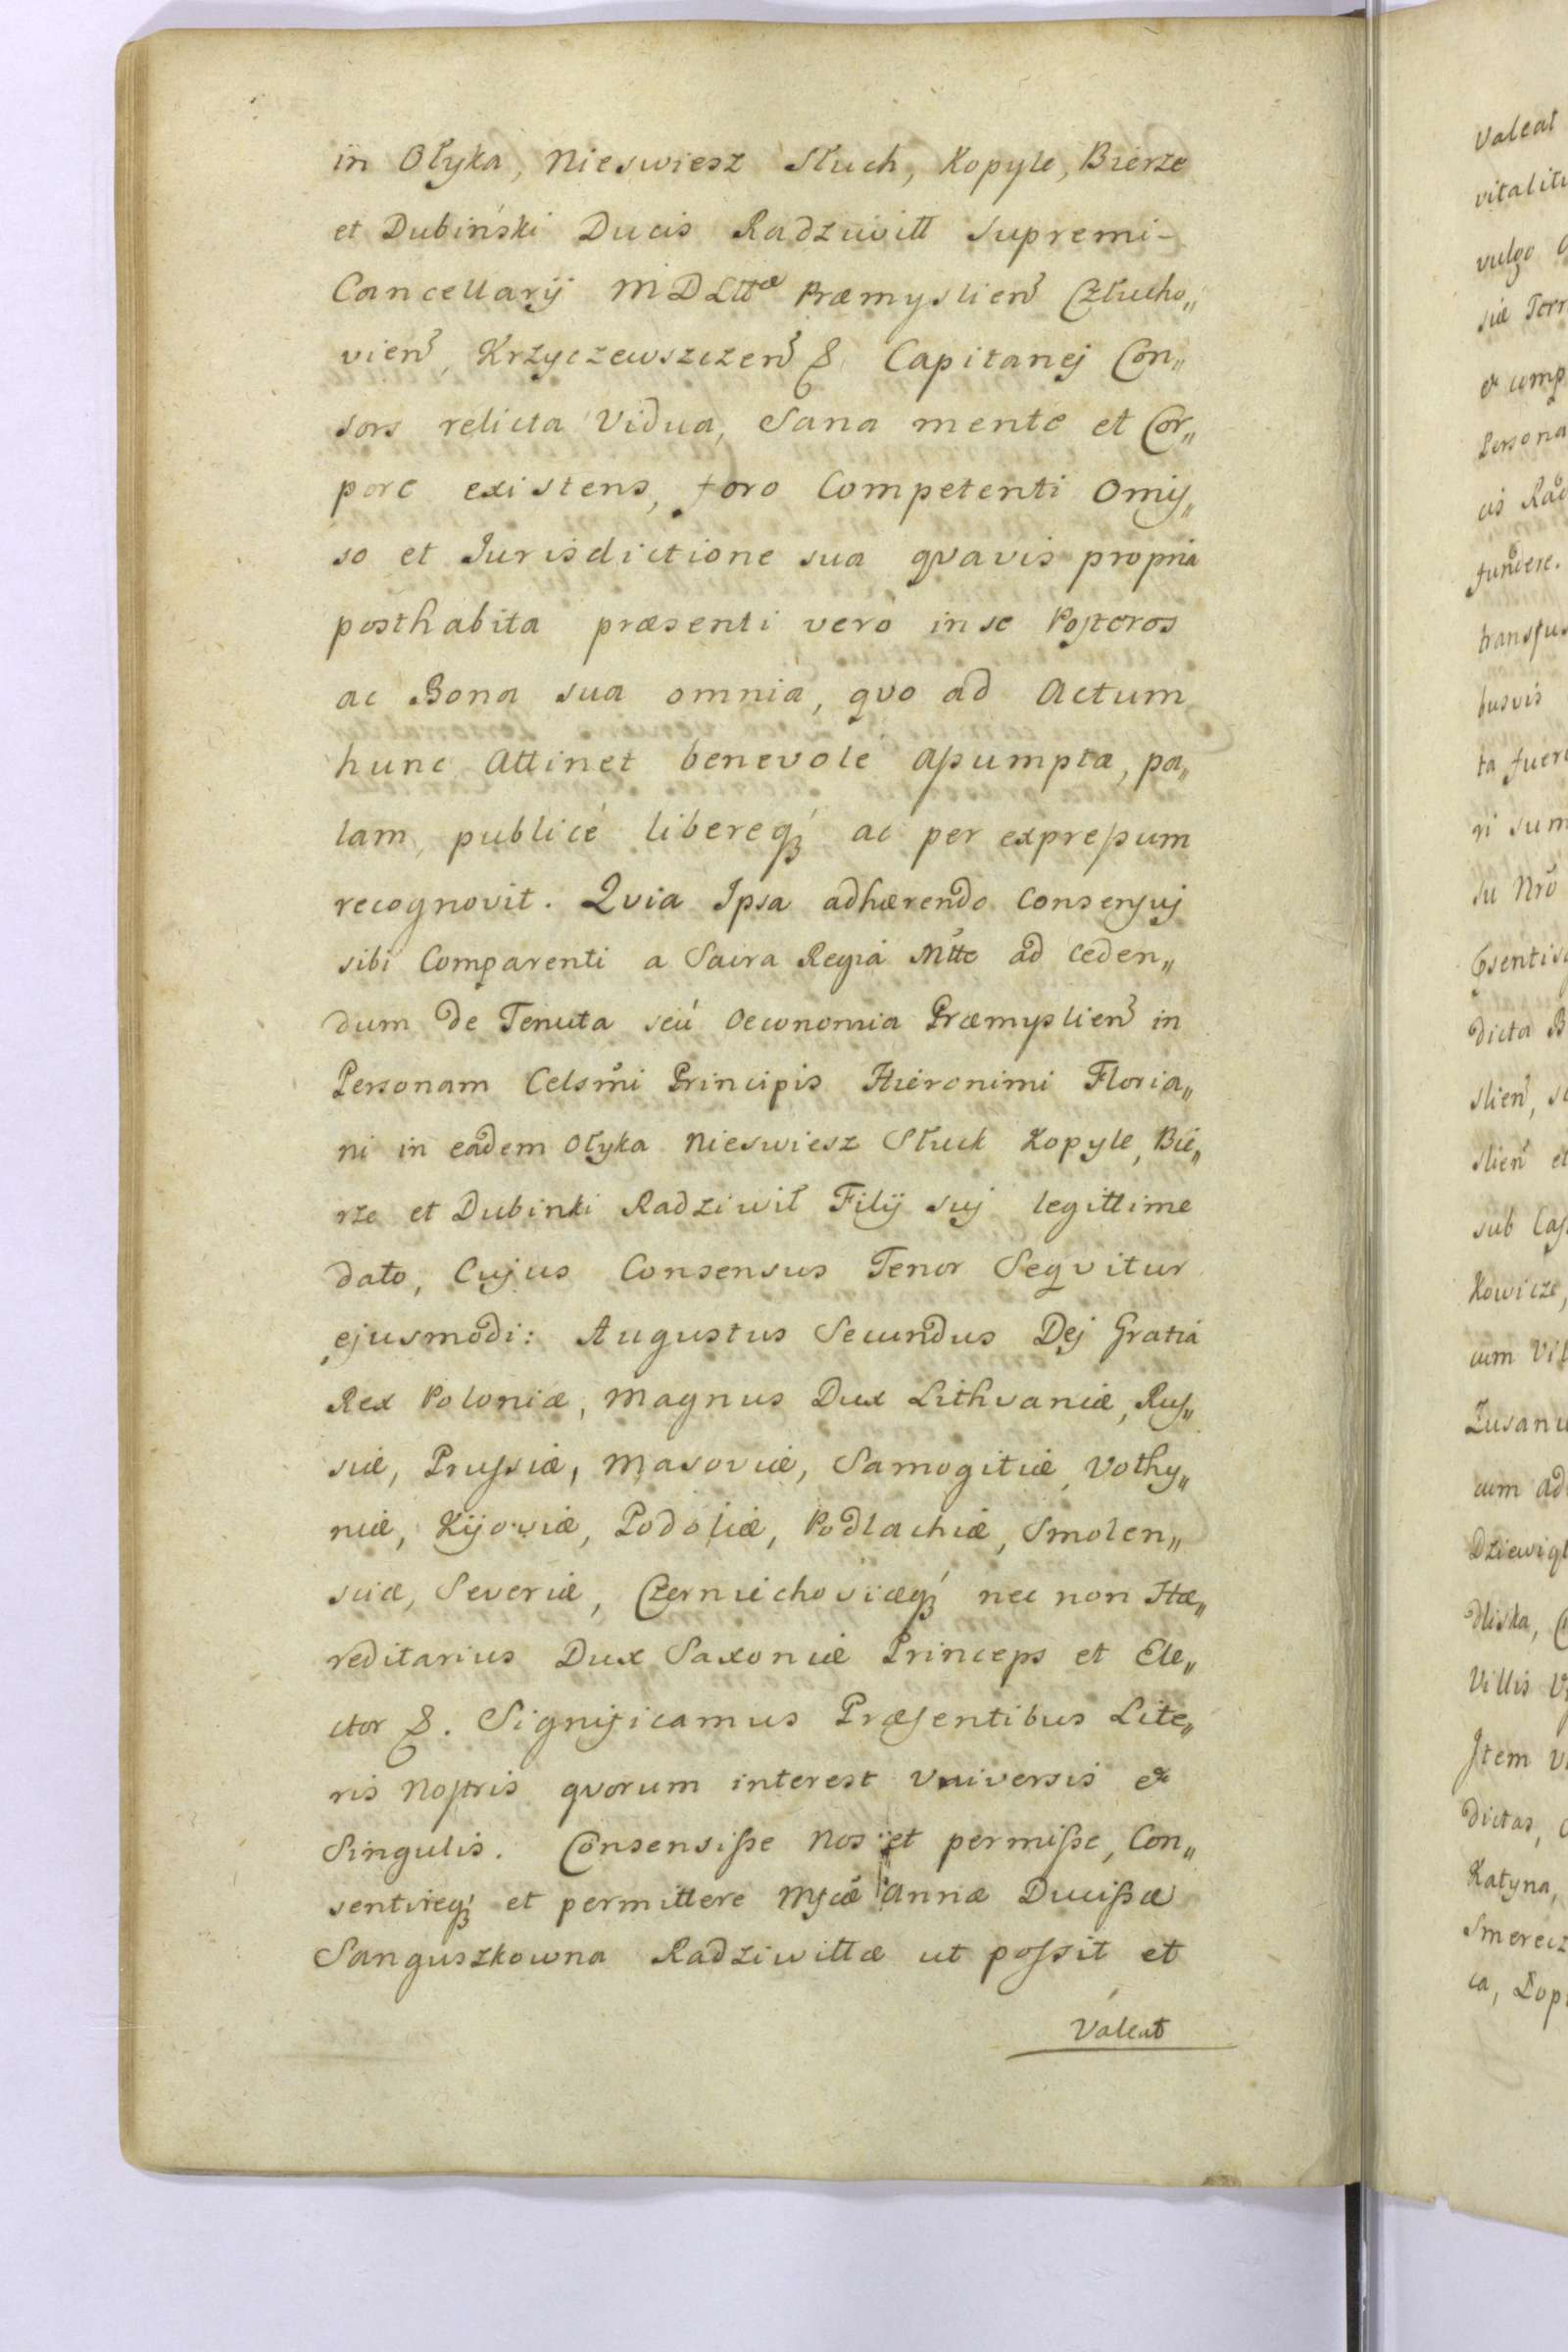 in Ołyka, Nieswiesz Słuch, Kopyle, Bierże
et Dubiński Ducis Radziwill supremi-
Cancellarij MDLttæ Præmyslien Człucho„
vien, Krzyczewszczen &. Capitanej Con„
sors relicta Vidua, Sana mente et Cor„
pore existens, foro Competenti Omis„
so et Jurisdictione sua qvavis propria
posthabita præsenti vero in se Posteros
ac Bona sua omnia, qvo ad Actum
hunc Attinet benevole assumpta, pa„
lam, publicé libereqʒ ac per expressum
recognovit. Qvia Ipsa adhærendo Consensuj
sibi Comparenti a Sacra Regia Mtte ad Ceden„
dum de Tenuta seú Oeconomia Præmyslien in
Personam Celsmi Principis Hieronimi Floria„
ni in eadem Ołyka Nieswiesz Słuck Kopyle, Bie„
rze et Dubinki Radziwił Filij suj legittime
dato, Cujus Consensus Tenor Seqvitur
ejusmodi: Augustus Secundus Dej Gratiá
Rex Poloniæ, Magnus Dux Lithvaniæ, Rus„
siæ, Prussiæ, Masoviæ, Samogitiæ, Volhy„
niæ, Kijoviæ, Podoliæ, Podlachiæ, Smolen„
sciæ, Severiæ, Czerniechoviæqʒ nec non Hæ„
reditarius Dux Saxoniæ Princeps et Ele„
ctor &. Significamus Præsentibus Lite„
ris Nostris qvorum interest Vniversis &
Singulis. Consensisse Nos et permisse, Con„
sentireqʒ et permittere Mfcæ Annæ Ducissæ
Sanguszkowna Radziwillæ ut possit et
Valeat
Valeat
vulgo
siæ Terr
& comp
Persona
cis Rad
fundere.
transfus
busvis
ta fuer
ri sum
su Nro
dicta B
slien, s
slien et
sub Cas
Kowicze,
cum Vil
cum ad
Villis V
Item V
dictas,
Katyna,